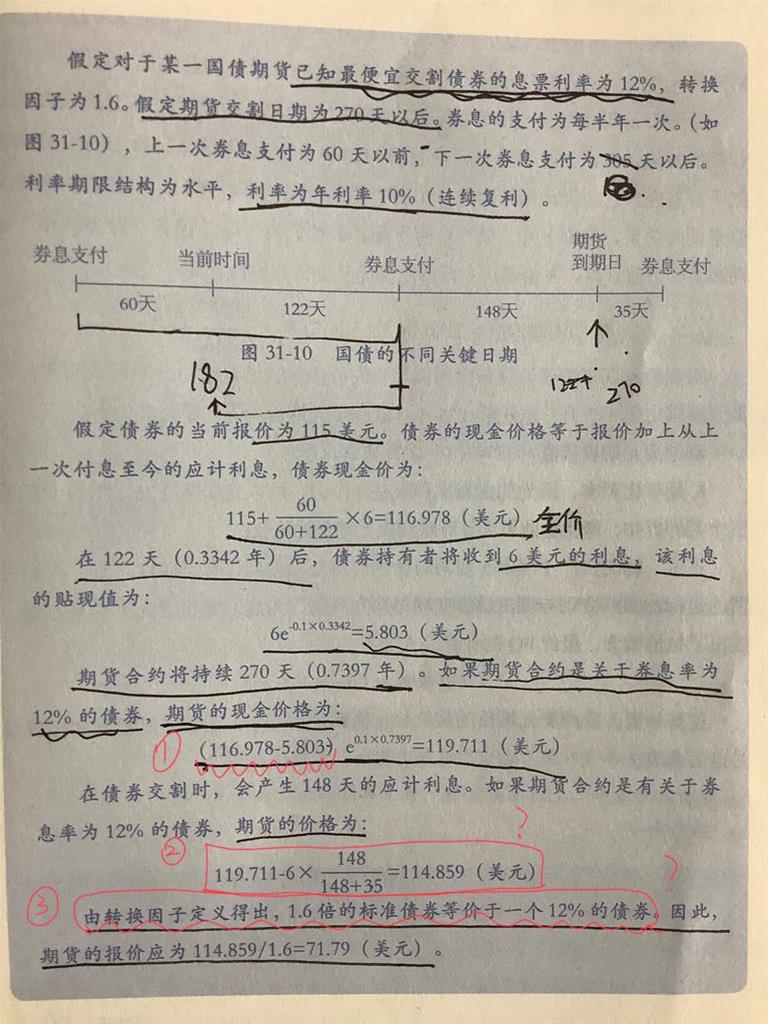 假定对于某一国债期货已知最便宜交割债券的息票利率为12%，转换
因子为1.6。假定期货交割日期为270天以后。券息的支付为每半年一次。（如
图31-10），上一次券息支付为60天以前，下一次券息支付为305天以后。
利率期限结构为水平，利率为年利率10%（连续复利）。
券息支付 当前时间 券息支付 期货到期日 券息支付
60天 122天 148天 35天
图31-10 国债的不同关键日期
182
270
假定债券的当前报价为115美元。债券的现金价格等于报价加上从上
一次付息至今的应计利息，债券现金价为：
115+60/(60+122)×6=116.978（美元） 全价
在122天（0.3342年）后，债券持有者将收到6美元的利息，该利息
的贴现值为：
6e^{-0.1×0.3342}=5.803（美元）
期货合约将持续270天（0.7397年）。如果期货合约是关于券息率为
12%的债券，期货的现金价格为：
① （116.978-5.803）e^{0.1×0.7397}=119.711（美元）
在债券交割时，会产生148天的应计利息。如果期货合约是有关于券
息率为12%的债券，期货的价格为： ?
② 119.711-6×148/(148+35)=114.859（美元） ?
③ 由转换因子定义得出，1.6倍的标准债券等价于一个12%的债券。因此，
期货的报价应为114.859/1.6=71.79（美元）。